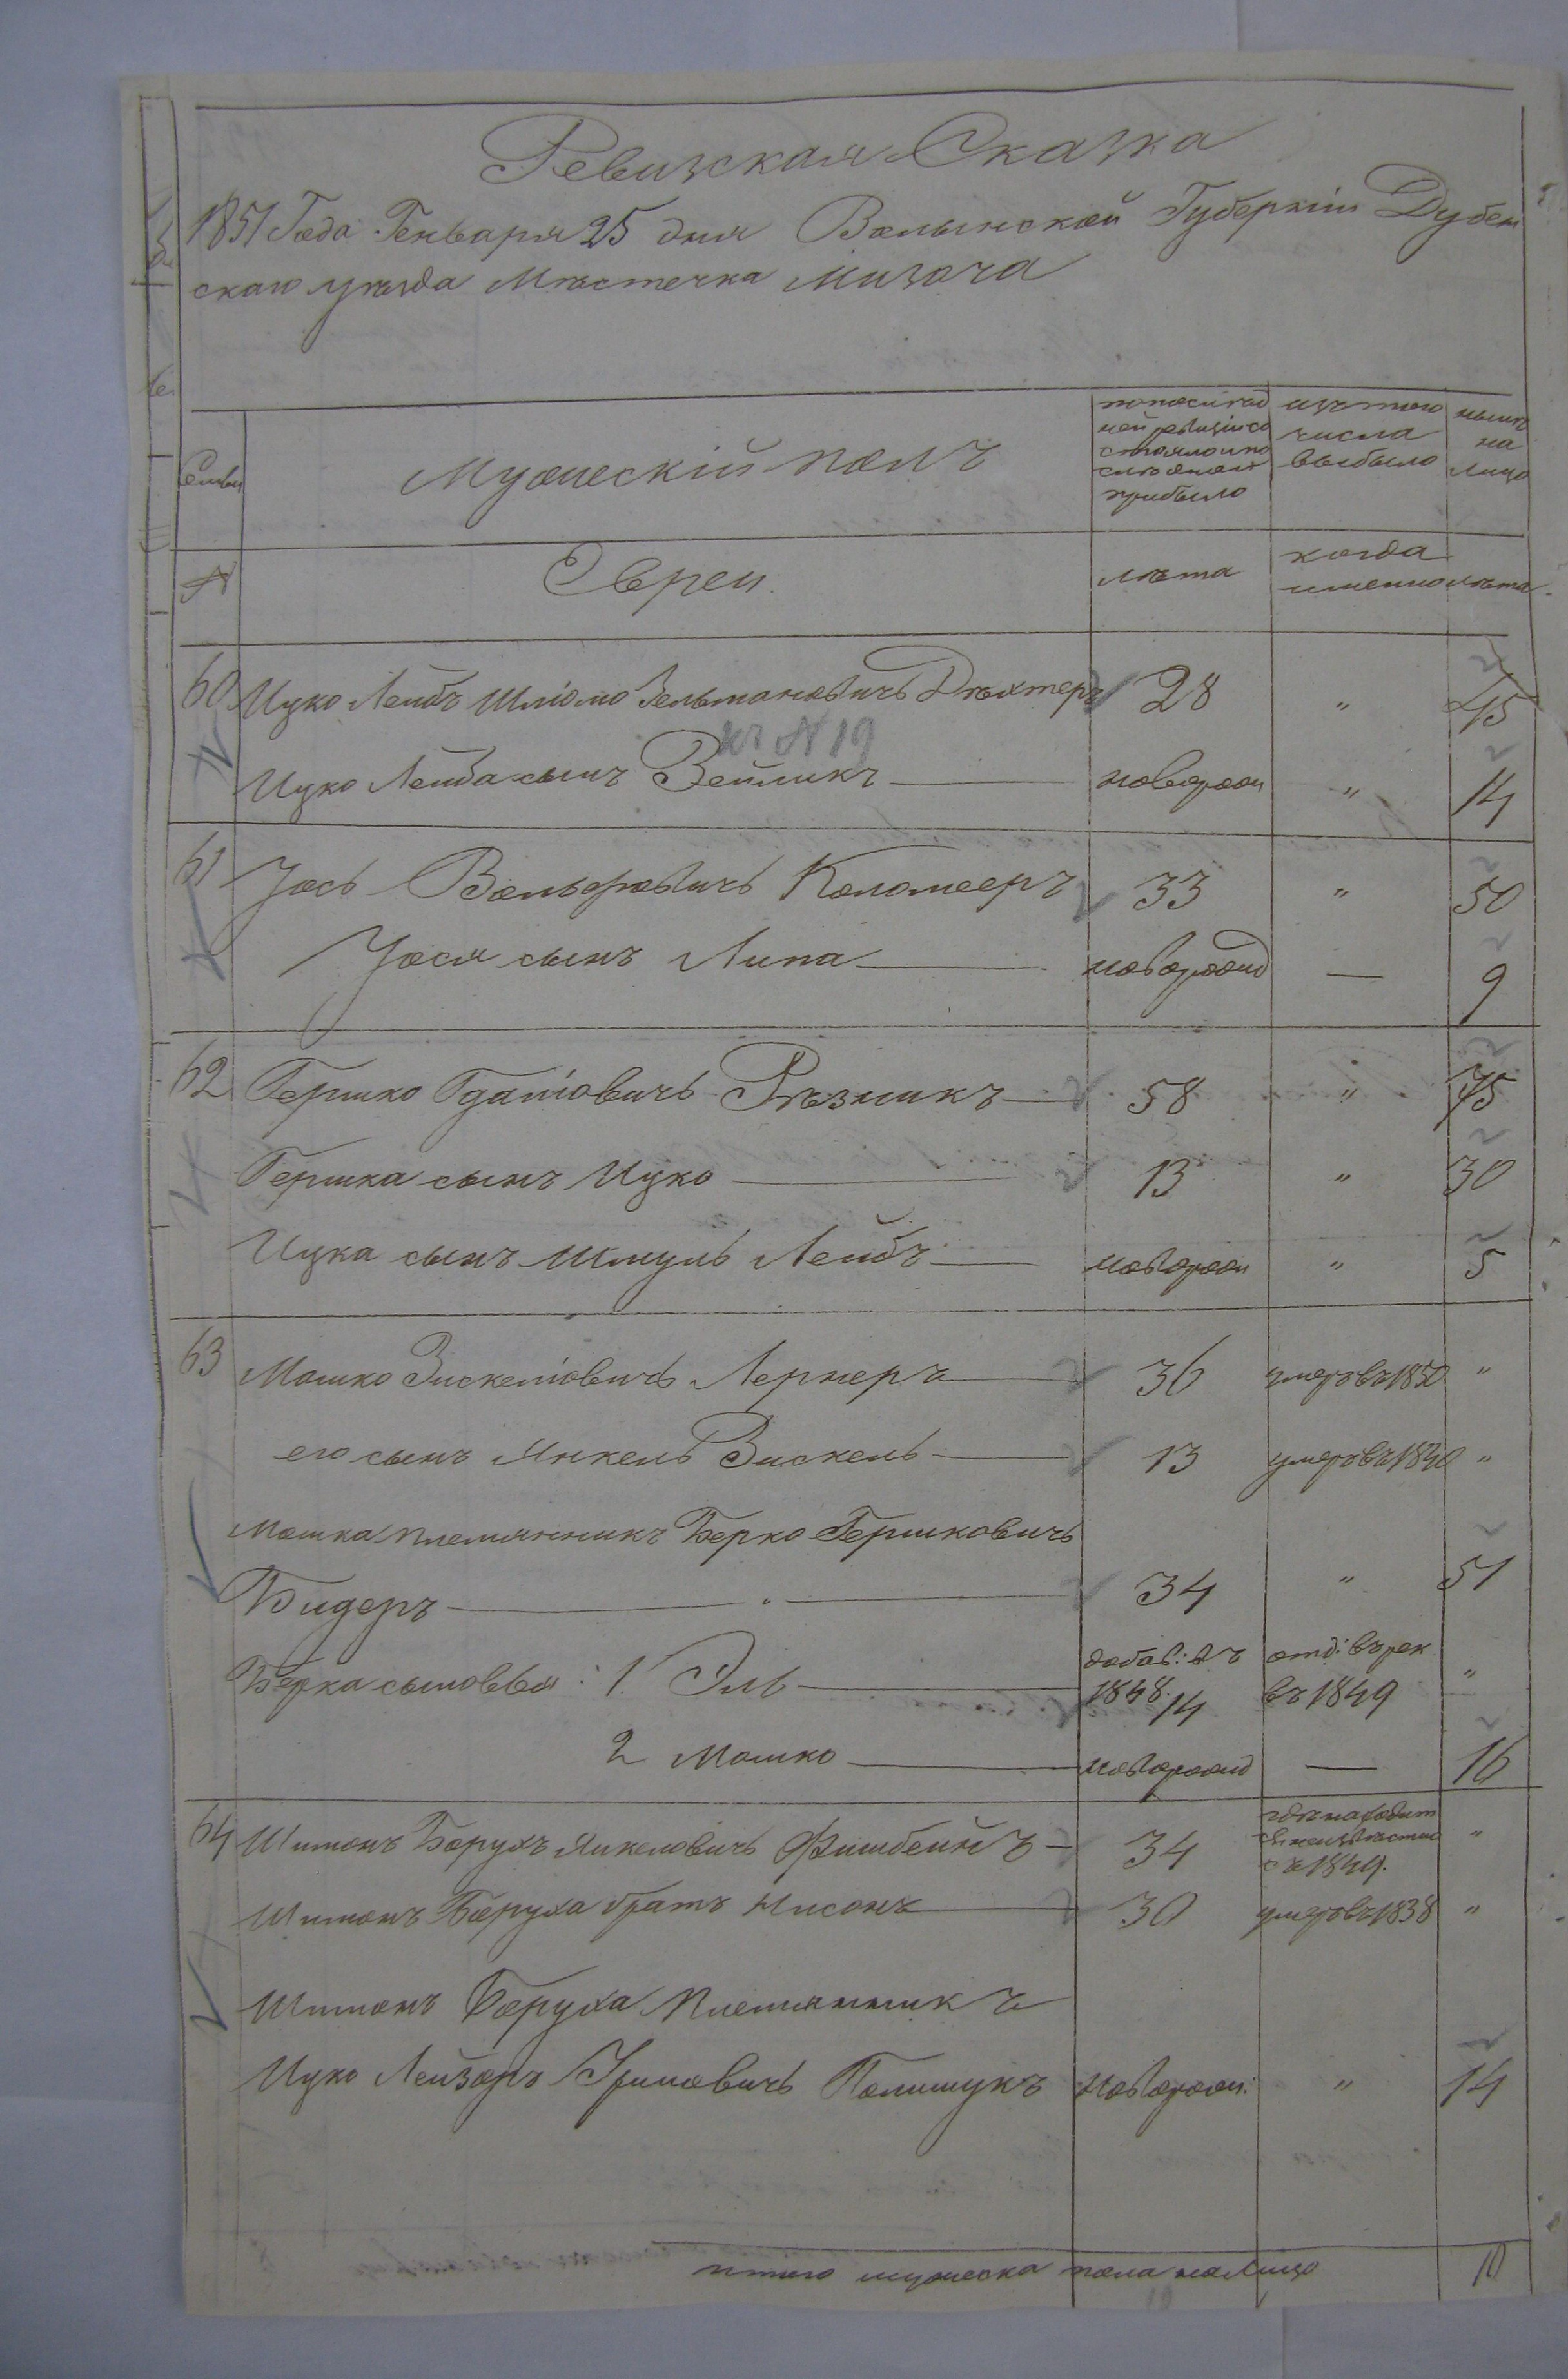 Ревизская Сказка
1851 Года Генваря 25 дня Волынской Губерніи Дубен
скаго уѣзда Мѣстечка Мизоча
Семьи
Мужескій полъ
по послѣд
ней ревизіи со
стояло и по
слѣ оной
прибыло
изъ того
числа
выбыло
нынѣ
на
лицо
№
Евреи.
лѣта
когда
именно
лѣта
60 Ицко Лейбъ Шліомо Зельмановичъ Дѣхтеръ 28 " 45
къ № 19
Ицко Лейба сынъ Зейликъ новорож " 14
61 Іось Вольфовичъ Коломееръ 33 " 50
Іося сынъ Липа новорожд — 9
62 Гершко Гдаліовичъ Рѣзникъ 58 " 75
Гершка сынъ Ицко 13 " 30
Ицка сынъ Шмуль Лейбъ новорож " 5
63 Мошко Зискеліовичъ Лернеръ 36 умеръ въ 1850 "
его сынъ Янкель Зискель 13 умеръ въ 1840 "
Мошка племянникъ Берко Гершковичъ
Бидеръ 34 " 51
Берка сыновья: 1 Эль добав: въ 1848. 14 отд: въ рек въ 1849 "
2 Мошко новорожд — 16
64 Шимонъ Борухъ Янкелевичъ Фишбейнъ 34 гдѣ находит ся неизвѣстно съ 1849. "
Шимонъ Боруха братъ Нисонъ 30 умеръ въ 1838 "
Шимонъ Боруха племянникъ
Ицко Лейзоръ Полищукъ новорож: " 14
итого мужеска пола на лицо 10